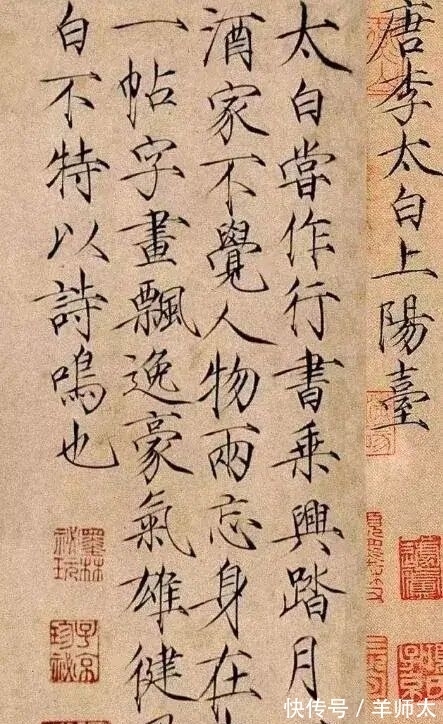 唐李太白上陽臺
太白嘗作行書乘興踏月
酒家不覺人物兩忘身在
一帖字畫飄逸豪氣雄健
白不特以詩鳴也
墨林祕玩
子京珍祕
快传号 / 羊师太